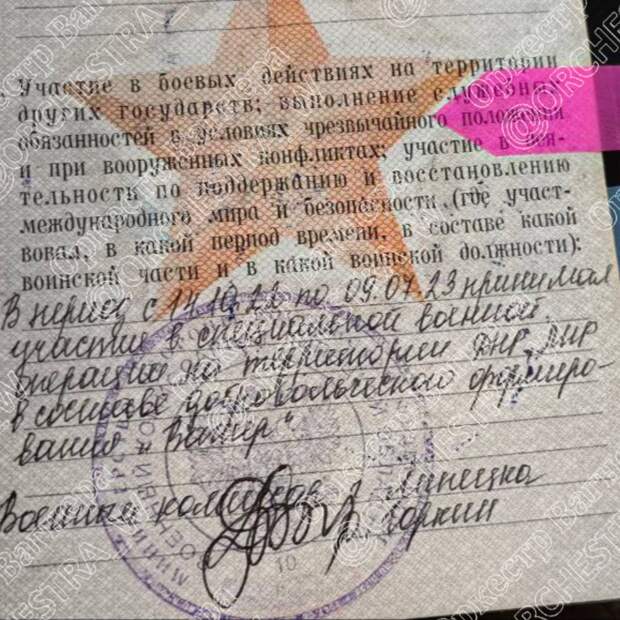 Участие в боевых действиях на территории
других государств; выполнение служебных
обязанностей в условиях чрезвычайного положения
и при вооруженных конфликтах; участие в дея-
тельности по поддержанию и восстановлению
международного мира и безопасности (где участ-
вовал, в какой период времени, в составе какой
воинской части и в какой воинской должности):
В период с 14.10.22 по 09.07.23 принимал
участие в специальной военной
операции на территории ДНР, ЛНР
в составе добровольческого формиро-
вания "Вагнер"
Военный комиссар г. Липецка
Горкин
@ORCHESTRA_W
Оркестр Вагнера